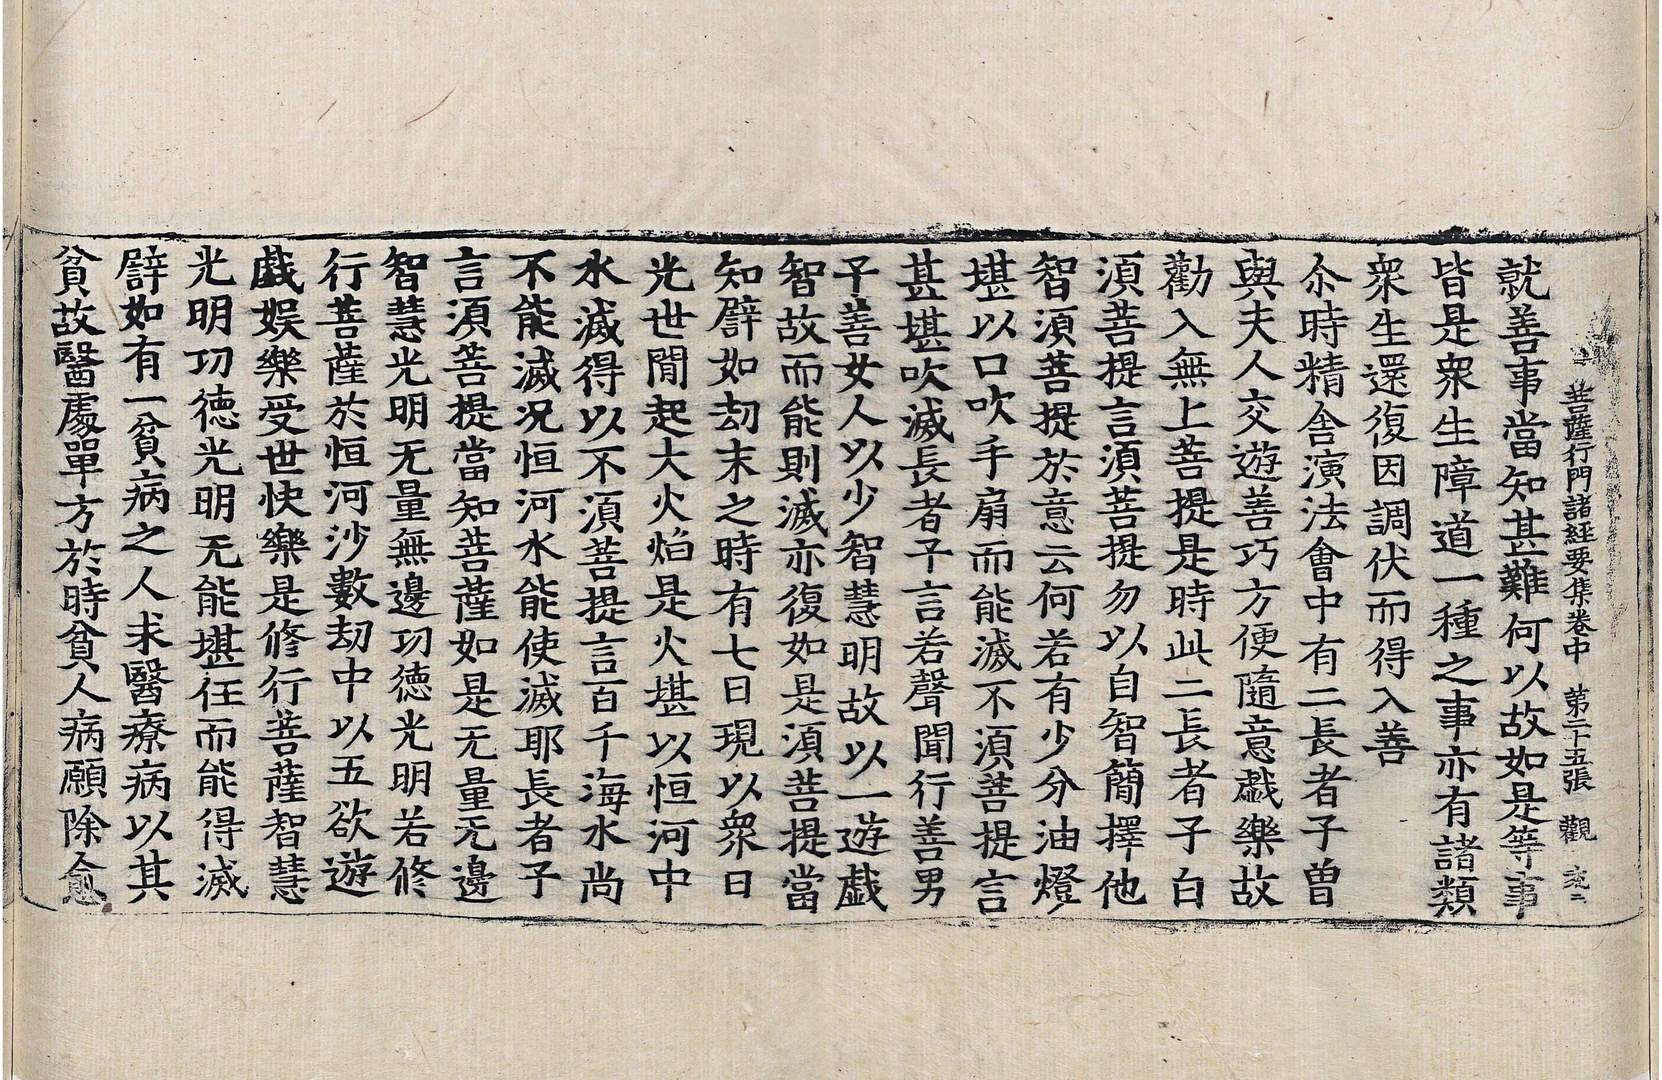 菩薩行門諸經要集卷中 第二十五張 觀
就善事當知甚難何以故如是等事
皆是衆生障道一種之事亦有諸類
衆生還復因調伏而得入善
尒時精舎演法會中有二長者子曽
與夫人交遊善巧方便隨意戯樂故
勸入無上菩提是時此二長者子白
湏菩提言湏菩提勿以自智簡擇他
智湏菩提於意云何若有少分油燈
堪以口吹手扇而能滅不湏菩提言
甚堪吹滅長者子言若聲聞行善男
子善女人以少智慧明故以一遊戯
智故而能則滅亦復如是湏菩提當
知譬如劫末之時有七日現以衆日
光世間起大火焰是火堪以恒河中
水滅得以不湏菩提言百千海水尚
不能滅况恒河水能使滅耶長者子
言湏菩提當知菩薩如是无量无邊
智慧光明无量無邊功德光明若修
行菩薩於恒河沙數劫中以五欲遊
戯娯樂受世快樂是修行菩薩智慧
光明功德光明无能堪任而能得滅
譬如有一貧病之人求醫療病以其
貧故醫處單方於時貧人病願除愈